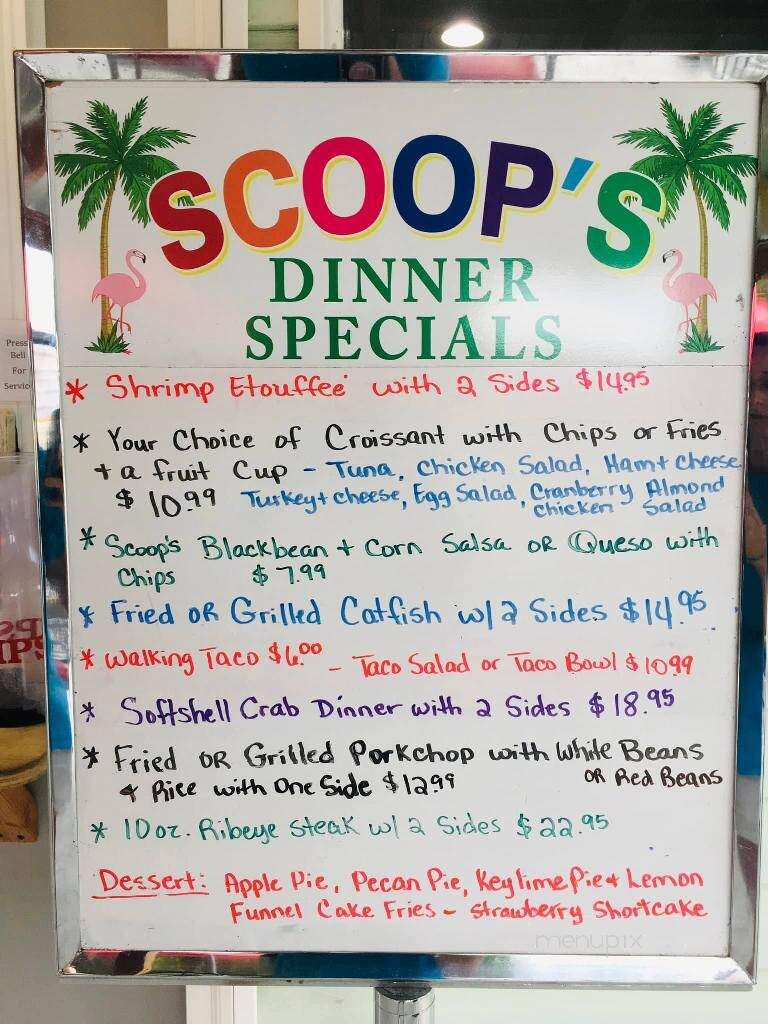 SCOOP'S
DINNER
SPECIALS
Press
Bell
For
Service
* Shrimp Etouffeé with 2 Sides $14.95
* Your Choice of Croissant with Chips or Fries
+ a fruit Cup - Tuna, Chicken Salad, Ham+ Cheese
$ 10.99 Turkey+ cheese, Egg Salad, Cranberry Almond
chicken Salad
* Scoop's Blackbean + Corn Salsa OR Queso with
Chips $7.99
* Fried OR Grilled Catfish w/2 Sides $14.95
* Walking Taco $6.00 - Taco Salad or Taco Bowl $10.99
* Softshell Crab Dinner with 2 Sides $18.95
* Fried OR Grilled Porkchop with White Beans
& Rice with One Side $12.99 OR Red Beans
* 10 oz. Ribeye Steak w/ 2 Sides $22.95
Dessert: Apple Pie, Pecan Pie, Key lime Pie + Lemon
Funnel Cake Fries - Strawberry Shortcake
menupix